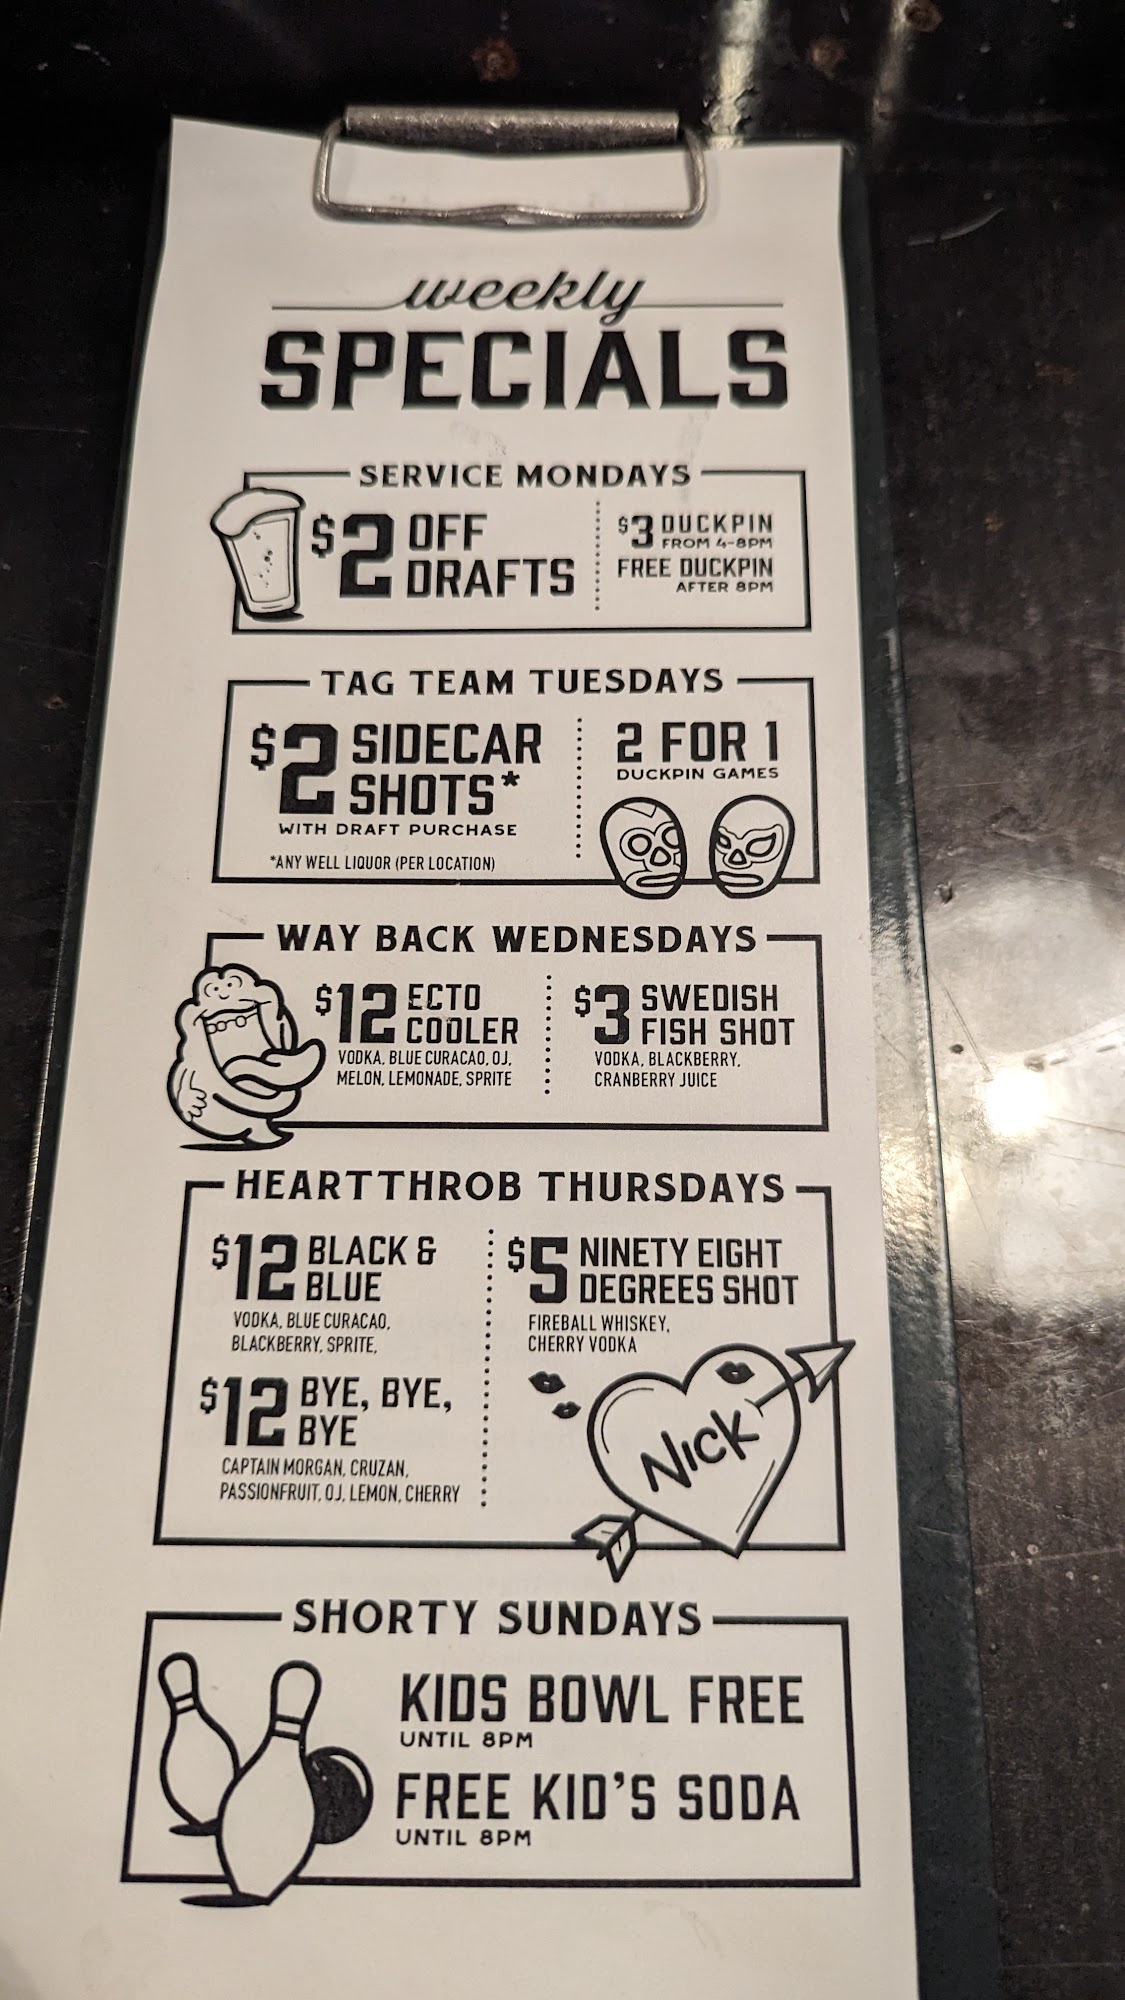 weekly
SPECIALS
SERVICE MONDAYS
$2 OFF
DRAFTS
$3 DUCKPIN
FROM 4-8PM
FREE DUCKPIN
AFTER 8PM
TAG TEAM TUESDAYS
$2 SIDECAR
SHOTS*
WITH DRAFT PURCHASE
*ANY WELL LIQUOR (PER LOCATION)
2 FOR 1
DUCKPIN GAMES
WAY BACK WEDNESDAYS
$12 ECTO
COOLER
VODKA, BLUE CURACAO, OJ,
MELON, LEMONADE, SPRITE
$3 SWEDISH
FISH SHOT
VODKA, BLACKBERRY,
CRANBERRY JUICE
HEARTTHROB THURSDAYS
$12 BLACK &
BLUE
VODKA, BLUE CURACAO,
BLACKBERRY, SPRITE,
$12 BYE, BYE,
BYE
CAPTAIN MORGAN, CRUZAN,
PASSIONFRUIT, OJ, LEMON, CHERRY
$5 NINETY EIGHT
DEGREES SHOT
FIREBALL WHISKEY,
CHERRY VODKA
NICK
SHORTY SUNDAYS
KIDS BOWL FREE
UNTIL 8PM
FREE KID'S SODA
UNTIL 8PM